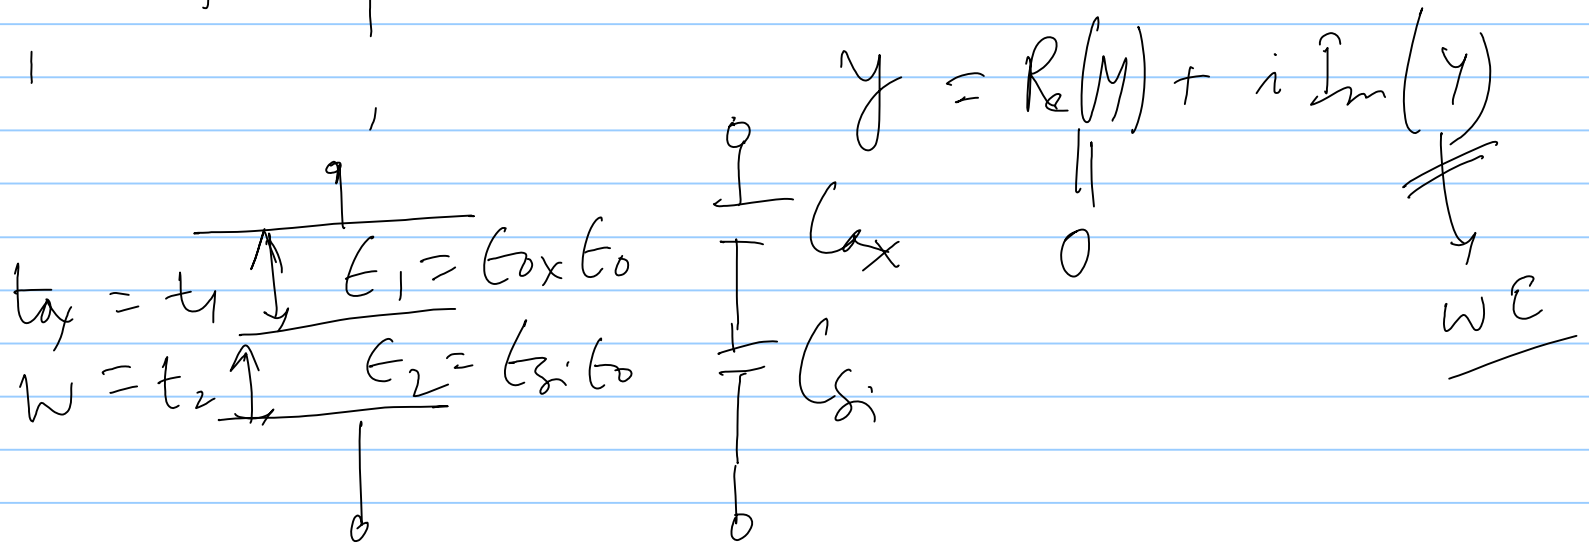 y = Re(Y) + i Im(Y)
||
0
ωC
t_ox = t_1
ϵ_1 = ϵ_ox ϵ_0
C_ox
W = t_2
ϵ_2 = ϵ_si ϵ_0
C_si